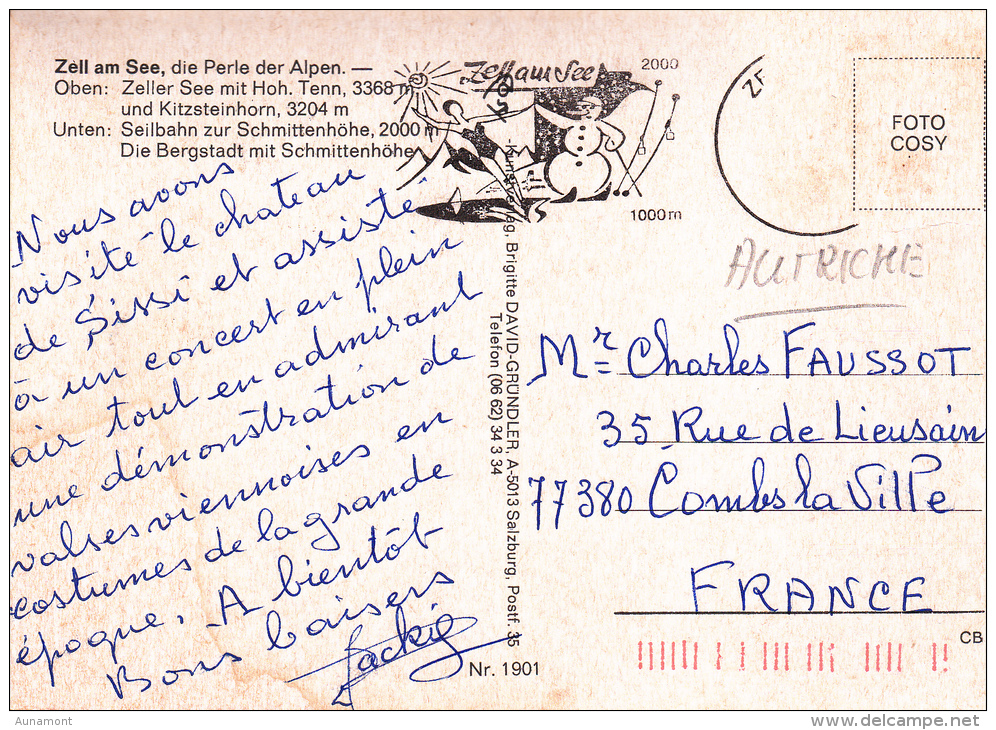 Zell am See, die Perle der Alpen. —
Oben: Zeller See mit Hoh. Tenn, 3368 m
und Kitzsteinhorn, 3204 m
Unten: Seilbahn zur Schmittenhöhe, 2000 m
Die Bergstadt mit Schmittenhöhe
Zell am See
2000
1000 m
ZF
FOTO
COSY
Nous avons
visité le chateau
de Sissi et assisté
à un concert en plein
air tout en admirant
une démonstration de
valses viennoises en
costumes de la grande
époque. A bientôt
Bons baisers
Jackie
Kunstverlag, Brigitte DAVID-GRÜNDLER, A-5013 Salzburg, Postf. 35
Telefon (06 62) 34 3 34
Nr. 1901
AUTRICHE
Mr Charles FAUSSOT
35 Rue de Lieusain
77380 Combs la Ville
FRANCE
CB
Aunamont
delcampe.net